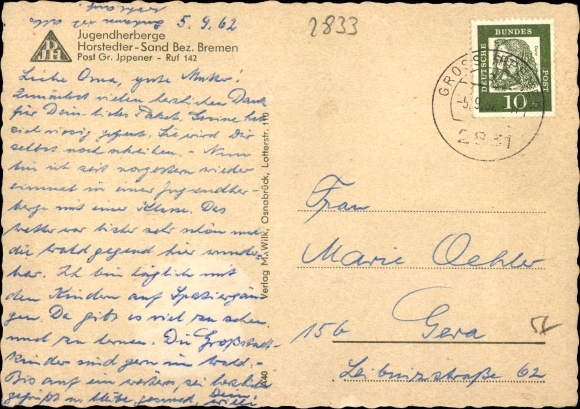 5.9.62
2833
Jugendherberge
Horstedter-Sand Bez. Bremen
Post Gr. Jppener - Ruf 142
Liebe Oma, gute Mutter!
Zunächst vielen herzlichen Dank
für Dein liebes Paket. hat
sich riesig gefreut. Sie wird Dir
selbst noch schreiben. - Nun
bin ich seit vorgestern wieder
einmal in einer Jugendher-
berge mit einer Klasse. Das
Wetter war bisher sehr schön und
die Waldgegend hier wunder-
bar. Ich bin täglich mit
den Kindern auf Spaziergän-
gen. Da gibt es viel zu sehen
und zu lernen. Die Großstadt-
kinder sind gern im Wald.-
Bis auf ein weiteres, sei herzlichst
gegrüßt u. bleibe gesund, Dein Willi
Verlag M. Wilk, Osnabrück, Lotterstr. 110
DEUTSCHE BUNDESPOST
10
GROSS
2831
Frau
Marie Oehler
15b Gera
Leibnizstraße 62